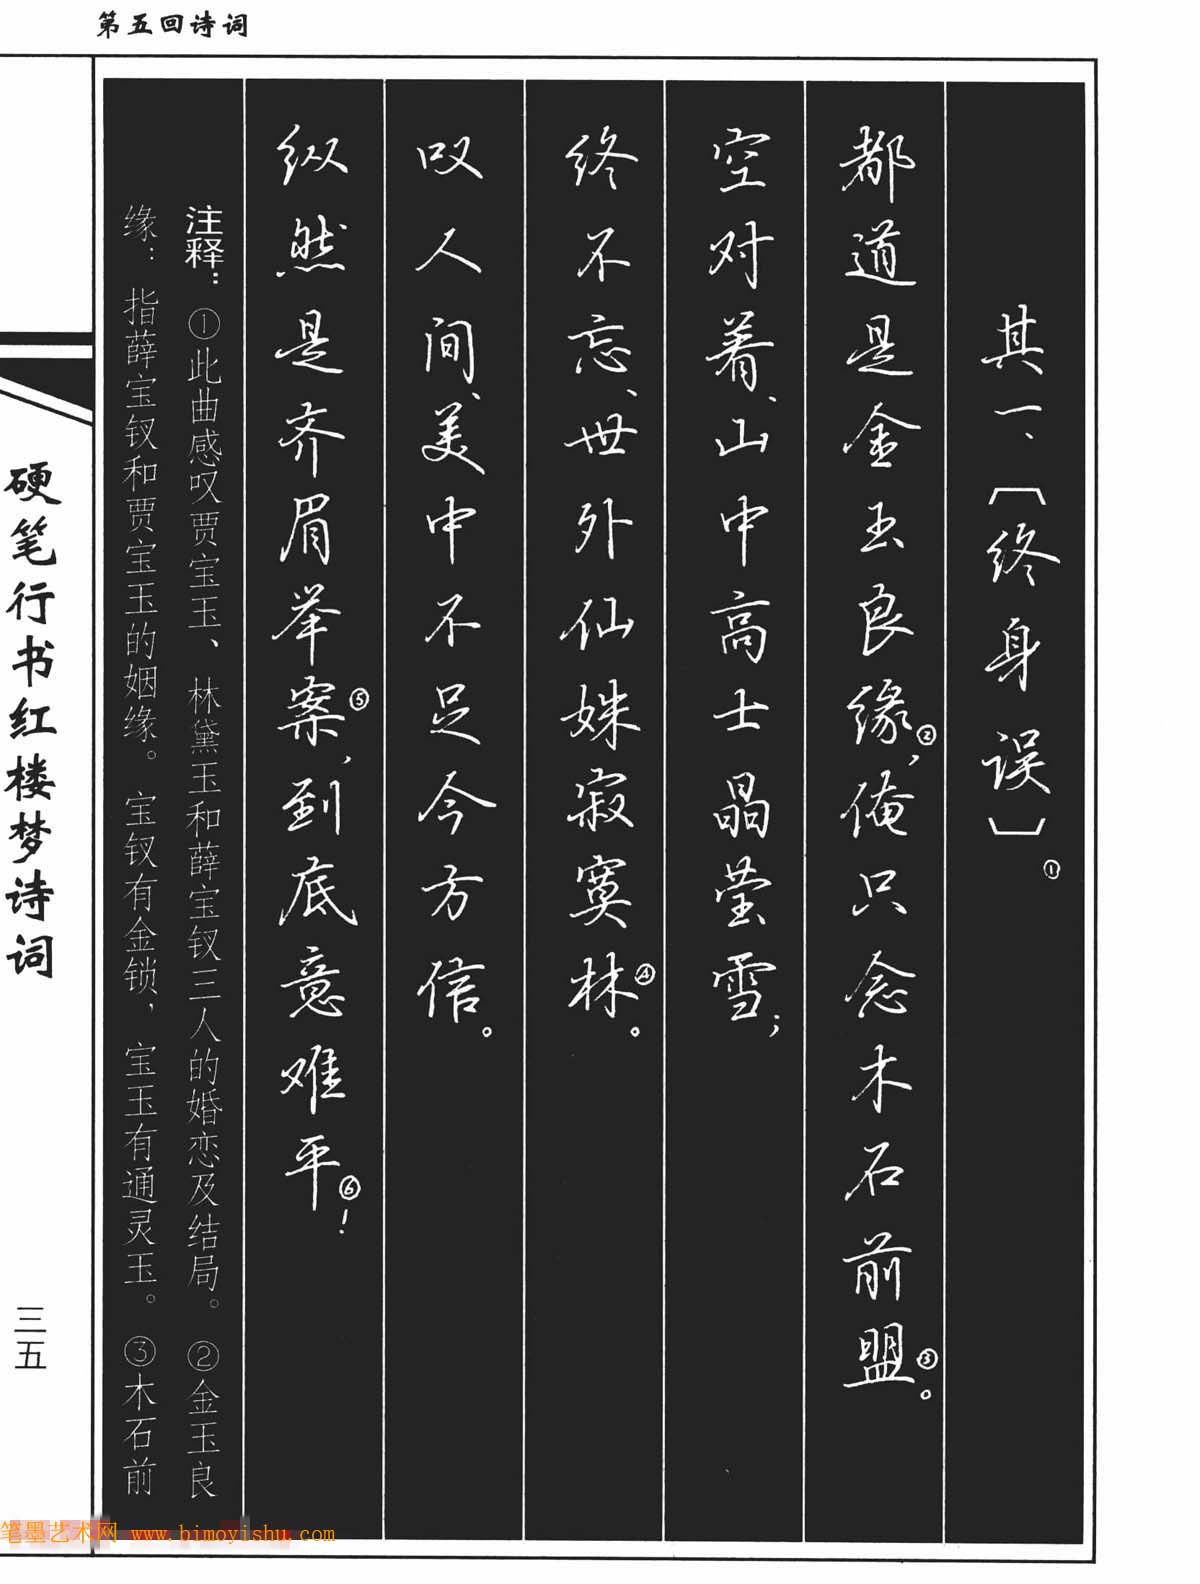 第五回诗词
其一、〔终身误〕①
都道是金玉良缘②，俺只念木石前盟③。
空对着、山中高士晶莹雪；
终不忘、世外仙姝寂寞林④。
叹人间、美中不足今方信。
纵然是齐眉举案⑤，到底意难平⑥！
注释：①此曲感叹贾宝玉、林黛玉和薛宝钗三人的婚恋及结局。②金玉良
缘：指薛宝钗和贾宝玉的姻缘。宝钗有金锁，宝玉有通灵玉。③木石前
硬笔行书红楼梦诗词
三五
笔墨艺术网 www.bimoyishu.com